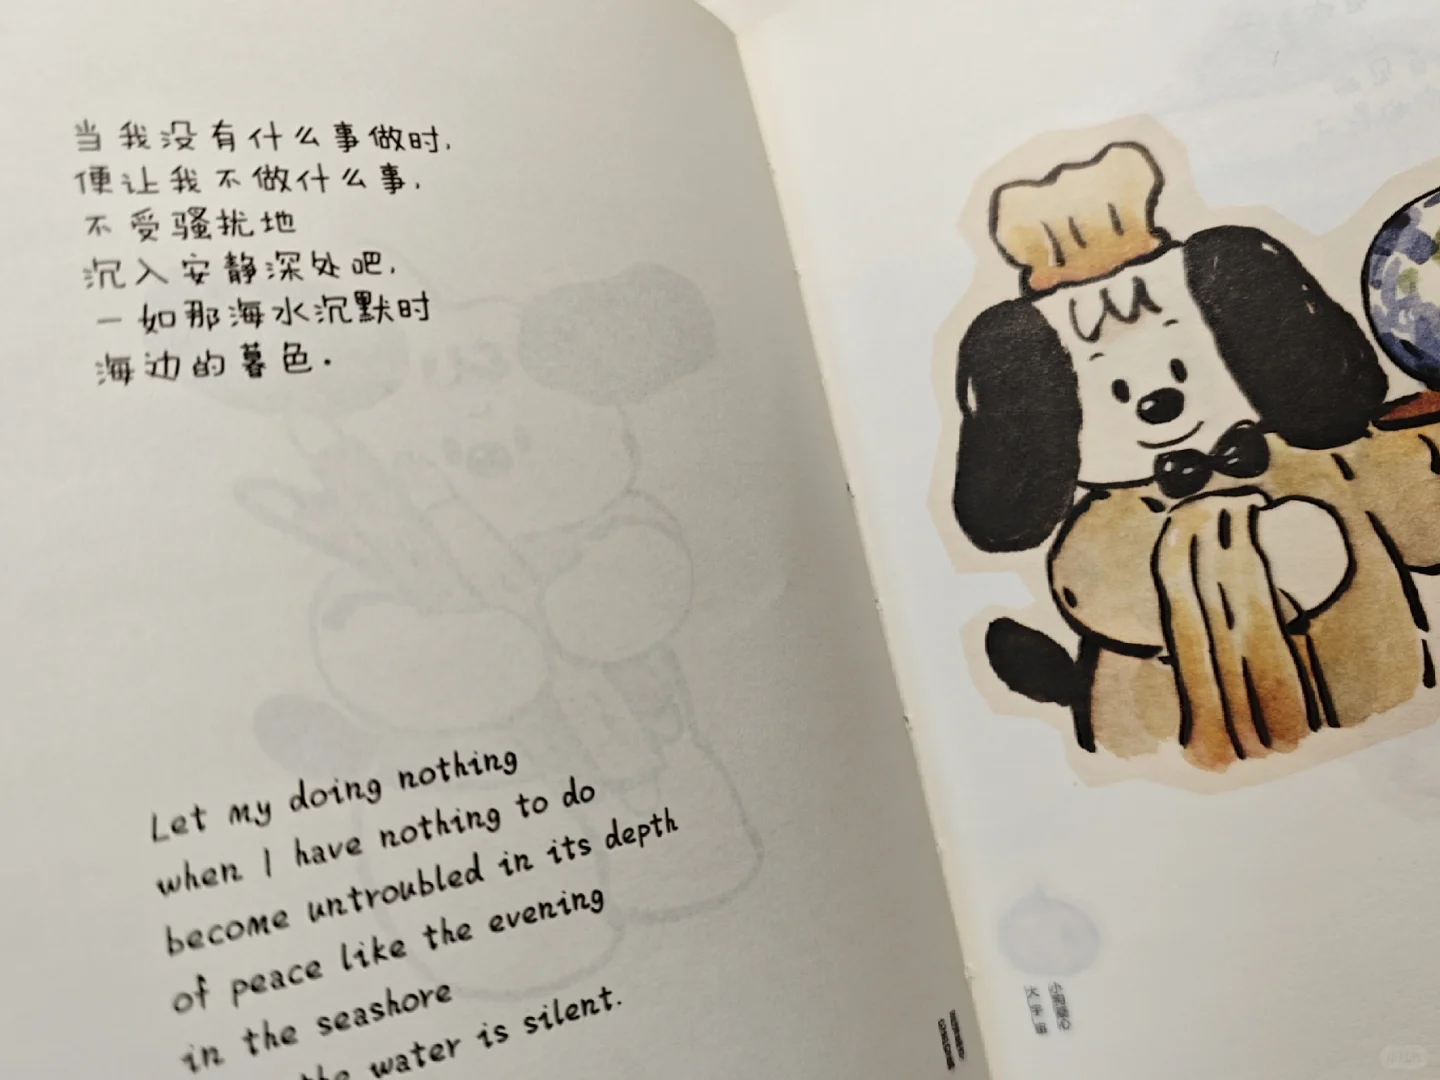 当我没有什么事做时,
便让我不做什么事,
不受骚扰地
沉入安静深处吧,
一如那海水沉默时
海边的暮色.
Let my doing nothing
when I have nothing to do
become untroubled in its depth
of peace like the evening
in the seashore
the water is silent.